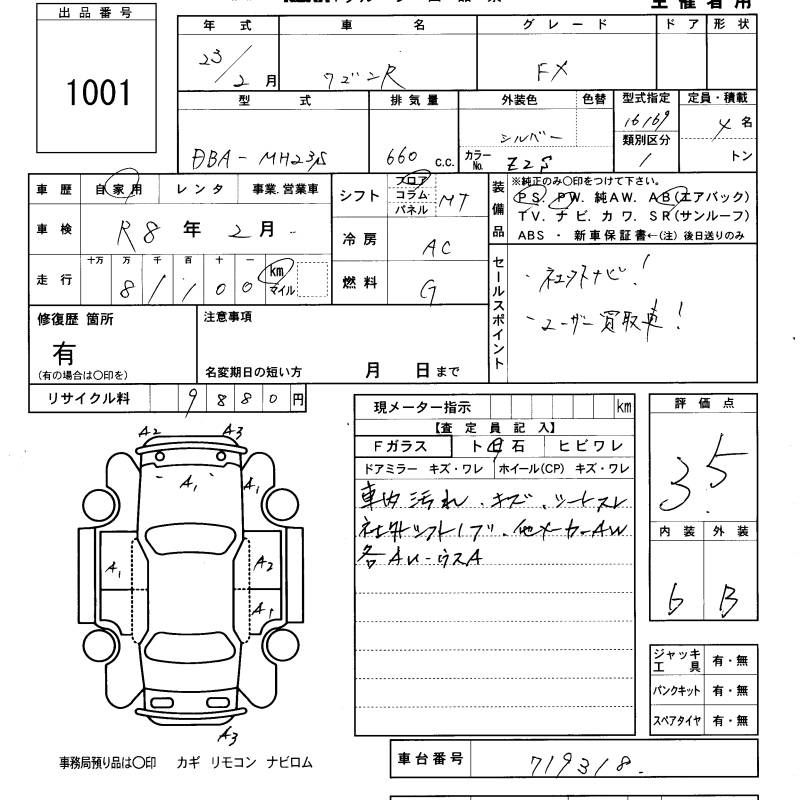 出品番号
1001
年式 車名 グレード ドア 形状
23/2月 ワゴンR FX
型式 排気量 外装色 色替 型式指定 定員・積載
DBA-MH23S 660 c.c. シルバー 16169 4名
カラーNo. Z2S 類別区分 1 トン
車歴 自家用 レンタ 事業.営業車
車検 R8年2月
走行 十万 万 千 百 十 一 km マイル
81100
シフト フロア コラム パネル MT
冷房 AC
燃料 G
装備品
※純正のみ〇印をつけて下さい。
PS. PW. 純AW. AB(エアバック)
TV. ナビ. カワ. SR(サンルーフ)
ABS ・ 新車保証書←(注) 後日送りのみ
セールスポイント
・ユーザー買取車!
修復歴 箇所 注意事項
有
(有の場合は〇印を) 名変期日の短い方 月 日まで
リサイクル料 9880円
現メーター指示 km
【査定員記入】
Fガラス ト石 ヒビワレ
ドアミラー キズ・ワレ ホイール(CP) キズ・ワレ
車内汚れ.キズ.シートスレ
社外シフトノブ.他メーカーAW
各AU-ウスA
評価点
3.5
内装 外装
6 B
A2 A3
A1 A1
A1 A2
A1
A3
ジャッキ工具 有・無
パンクキット 有・無
スペアタイヤ 有・無
事務局預り品は〇印 カギ リモコン ナビロム
車台番号 719318.